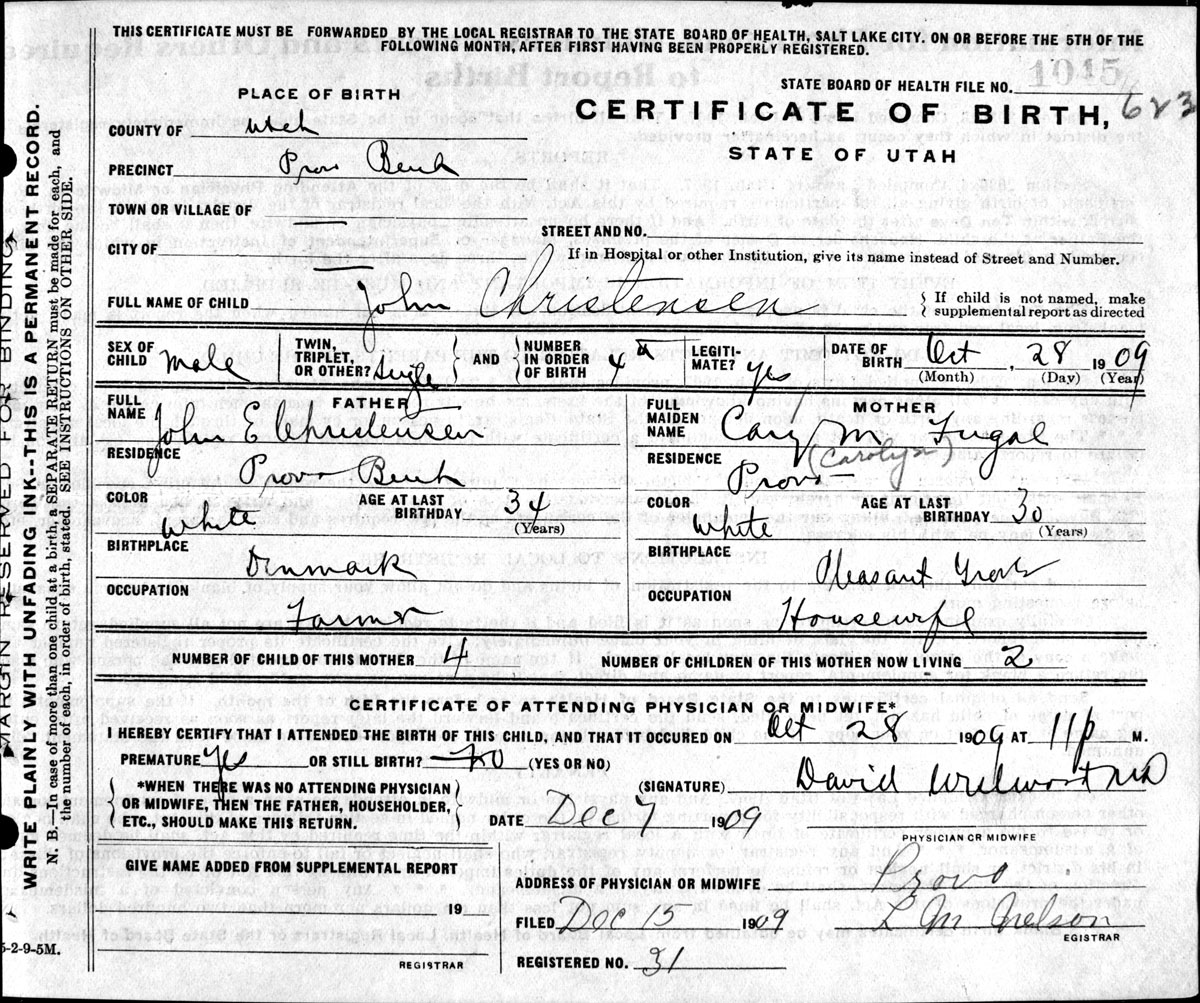 THIS CERTIFICATE MUST BE FORWARDED BY THE LOCAL REGISTRAR TO THE STATE BOARD OF HEALTH, SALT LAKE CITY. ON OR BEFORE THE 5TH OF THE
FOLLOWING MONTH, AFTER FIRST HAVING BEEN PROPERLY REGISTERED.
1045
STATE BOARD OF HEALTH FILE NO.
PLACE OF BIRTH
CERTIFICATE OF BIRTH, 623
STATE OF UTAH
COUNTY OF Utah
PRECINCT Provo Bench
TOWN OR VILLAGE OF —
STREET AND NO.
CITY OF —
If in Hospital or other Institution, give its name instead of Street and Number.
FULL NAME OF CHILD John Christensen
If child is not named, make
supplemental report as directed
SEX OF CHILD Male TWIN, TRIPLET, OR OTHER? Single AND NUMBER IN ORDER OF BIRTH 4 LEGITI- MATE? yes DATE OF BIRTH Oct, 28 1909
(Month) (Day) (Year)
FATHER
FULL NAME John E Christensen
RESIDENCE Provo Bench
COLOR White AGE AT LAST BIRTHDAY 34
(Years)
BIRTHPLACE Denmark
OCCUPATION Farmer
MOTHER
FULL MAIDEN NAME Cary M Fugal
(Carolyn)
RESIDENCE Provo
COLOR White AGE AT LAST BIRTHDAY 30
(Years)
BIRTHPLACE Pleasant Grove
OCCUPATION Housewife
NUMBER OF CHILD OF THIS MOTHER 4 NUMBER OF CHILDREN OF THIS MOTHER NOW LIVING 2
CERTIFICATE OF ATTENDING PHYSICIAN OR MIDWIFE*
I HEREBY CERTIFY THAT I ATTENDED THE BIRTH OF THIS CHILD, AND THAT IT OCCURED ON Oct 28 1909 AT 11 P M.
PREMATURE yes OR STILL BIRTH? no (YES OR NO)
(SIGNATURE) David MD
*WHEN THERE WAS NO ATTENDING PHYSICIAN
OR MIDWIFE, THEN THE FATHER, HOUSEHOLDER,
ETC., SHOULD MAKE THIS RETURN.
DATE Dec 1 1909
PHYSICIAN OR MIDWIFE
GIVE NAME ADDED FROM SUPPLEMENTAL REPORT
19
REGISTRAR
ADDRESS OF PHYSICIAN OR MIDWIFE Provo
FILED Dec 15 1909 L M Nelson
EGISTRAR
REGISTERED NO. 31
5-2-9-5M.
MARGIN RESERVED FOR BINDING
WRITE PLAINLY WITH UNFADING INK--THIS IS A PERMANENT RECORD.
N. B.—In case of more than one child at a birth, a SEPARATE RETURN must be made for each, and
the number of each, in order of birth, stated. SEE INSTRUCTIONS ON OTHER SIDE.